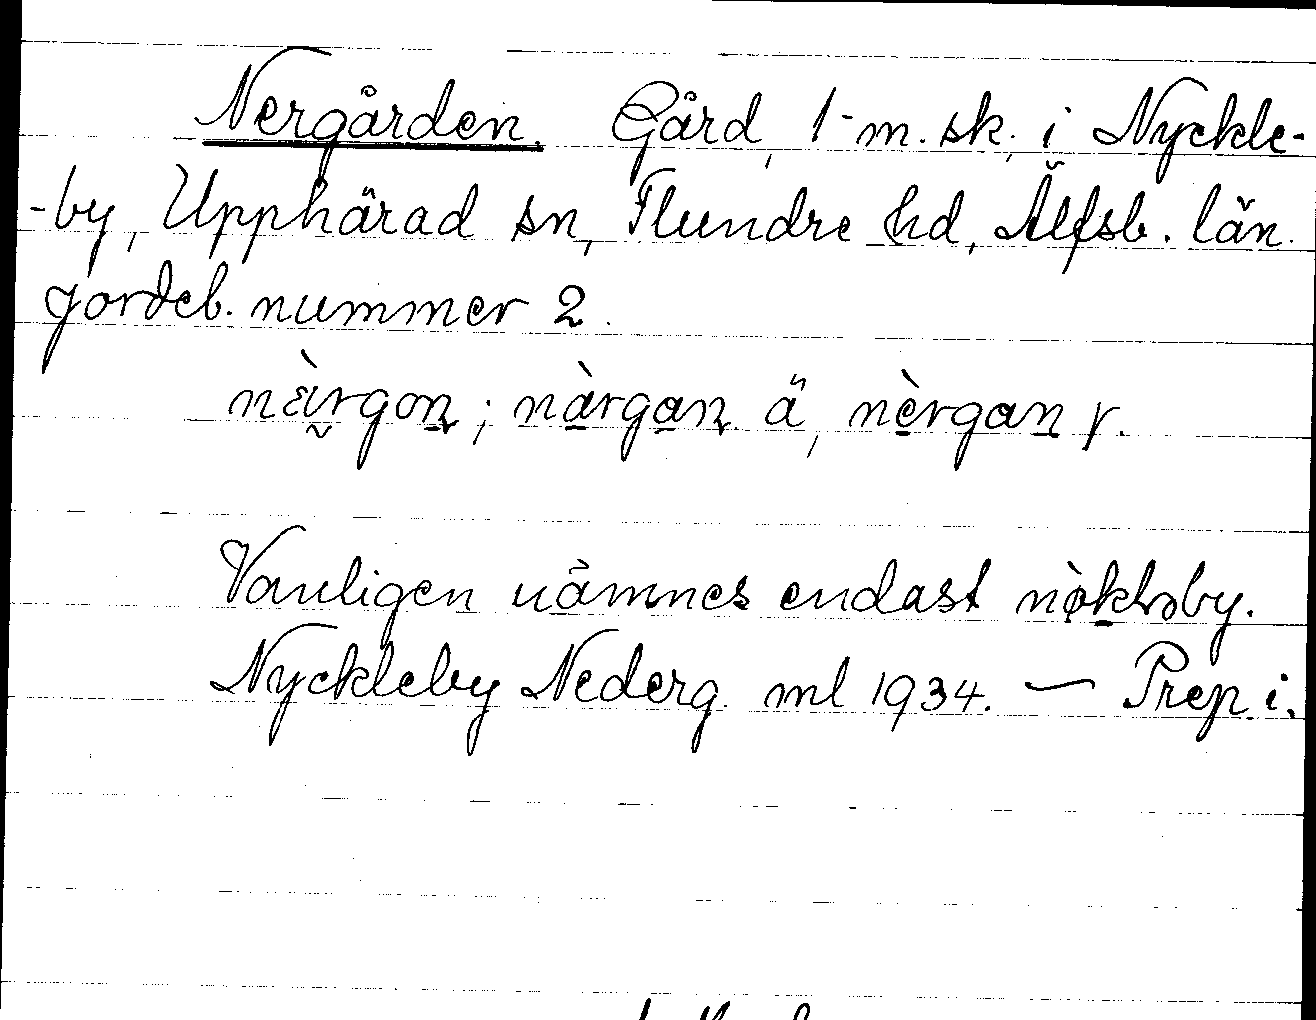 Nergården. Gård, 1-m.sk. i Nyckle-
-by, Upphärad sn, Flundre hd, Älfsb. län.
Jordeb. nummer 2.
nä̀rgon; nàrgan ä, nèrgan y.
Vanligen nämnes endast nø̀kləby.
Nyckleby Nederg. ml 1934. — Prep. i.